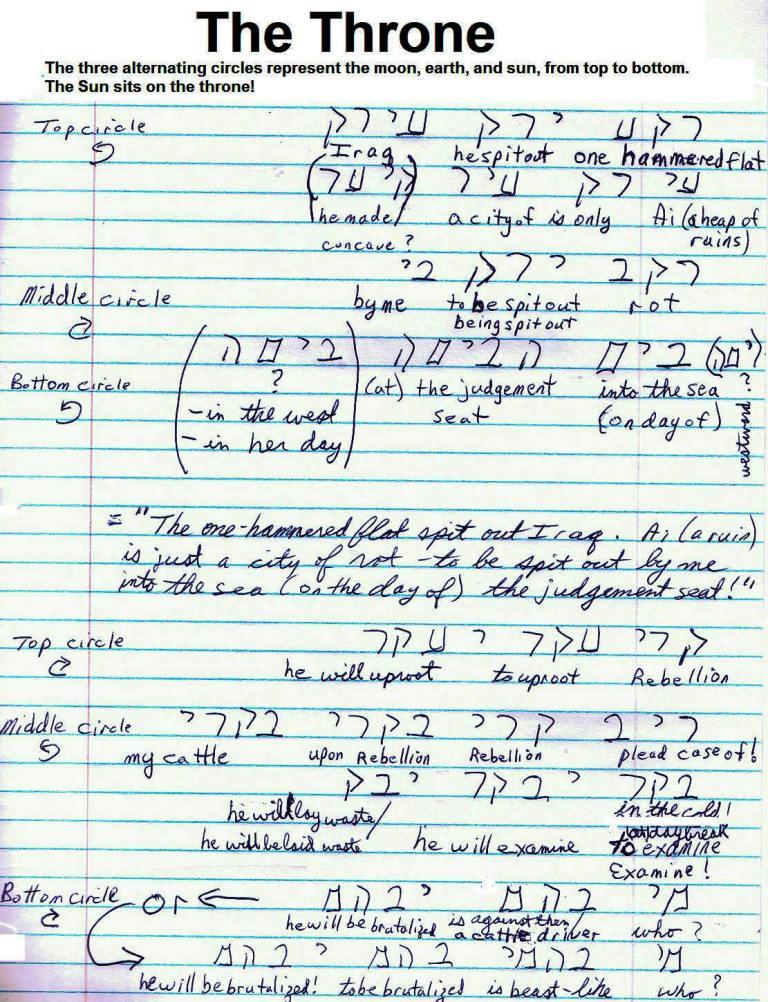 The Throne
The three alternating circles represent the moon, earth, and sun, from top to bottom.
The Sun sits on the throne!
Top circle
רקע ירק עירק
Iraq he spit out one hammered flat
עי רק עיר (קיער)
he made/ a city of is only Ai (a heap of
concave ? ruins)
רקב ירק בי
Middle circle
by me to be spit out rot
being spit out
(ימה) בים הבימה (בימה)
Bottom circle
? (at) the judgement into the sea
- in the west seat (on day of)
- in her day
westword ?
= "The one-hammered flat spit out Iraq. Ai (a ruin)
is just a city of rot - to be spit out by me
into the sea (on the day of) the judgement seat!"
Top circle
קרי עקר יעקר
he will uproot to uproot Rebellion
Middle circle
ריב קרי בקרי בקרי
my cattle upon Rebellion Rebellion plead case of!
בקר יבקר יבק
he will lay waste/ in the cold!
at daybreak
he will be laid waste he will examine to examine
Examine!
Bottom circle or
מי בהם יבהם
he will be brutalized is against them/ who ?
a cattle driver
מי בהמי בהם יבהם
he will be brutalized! to be brutalized is beast-like who ?